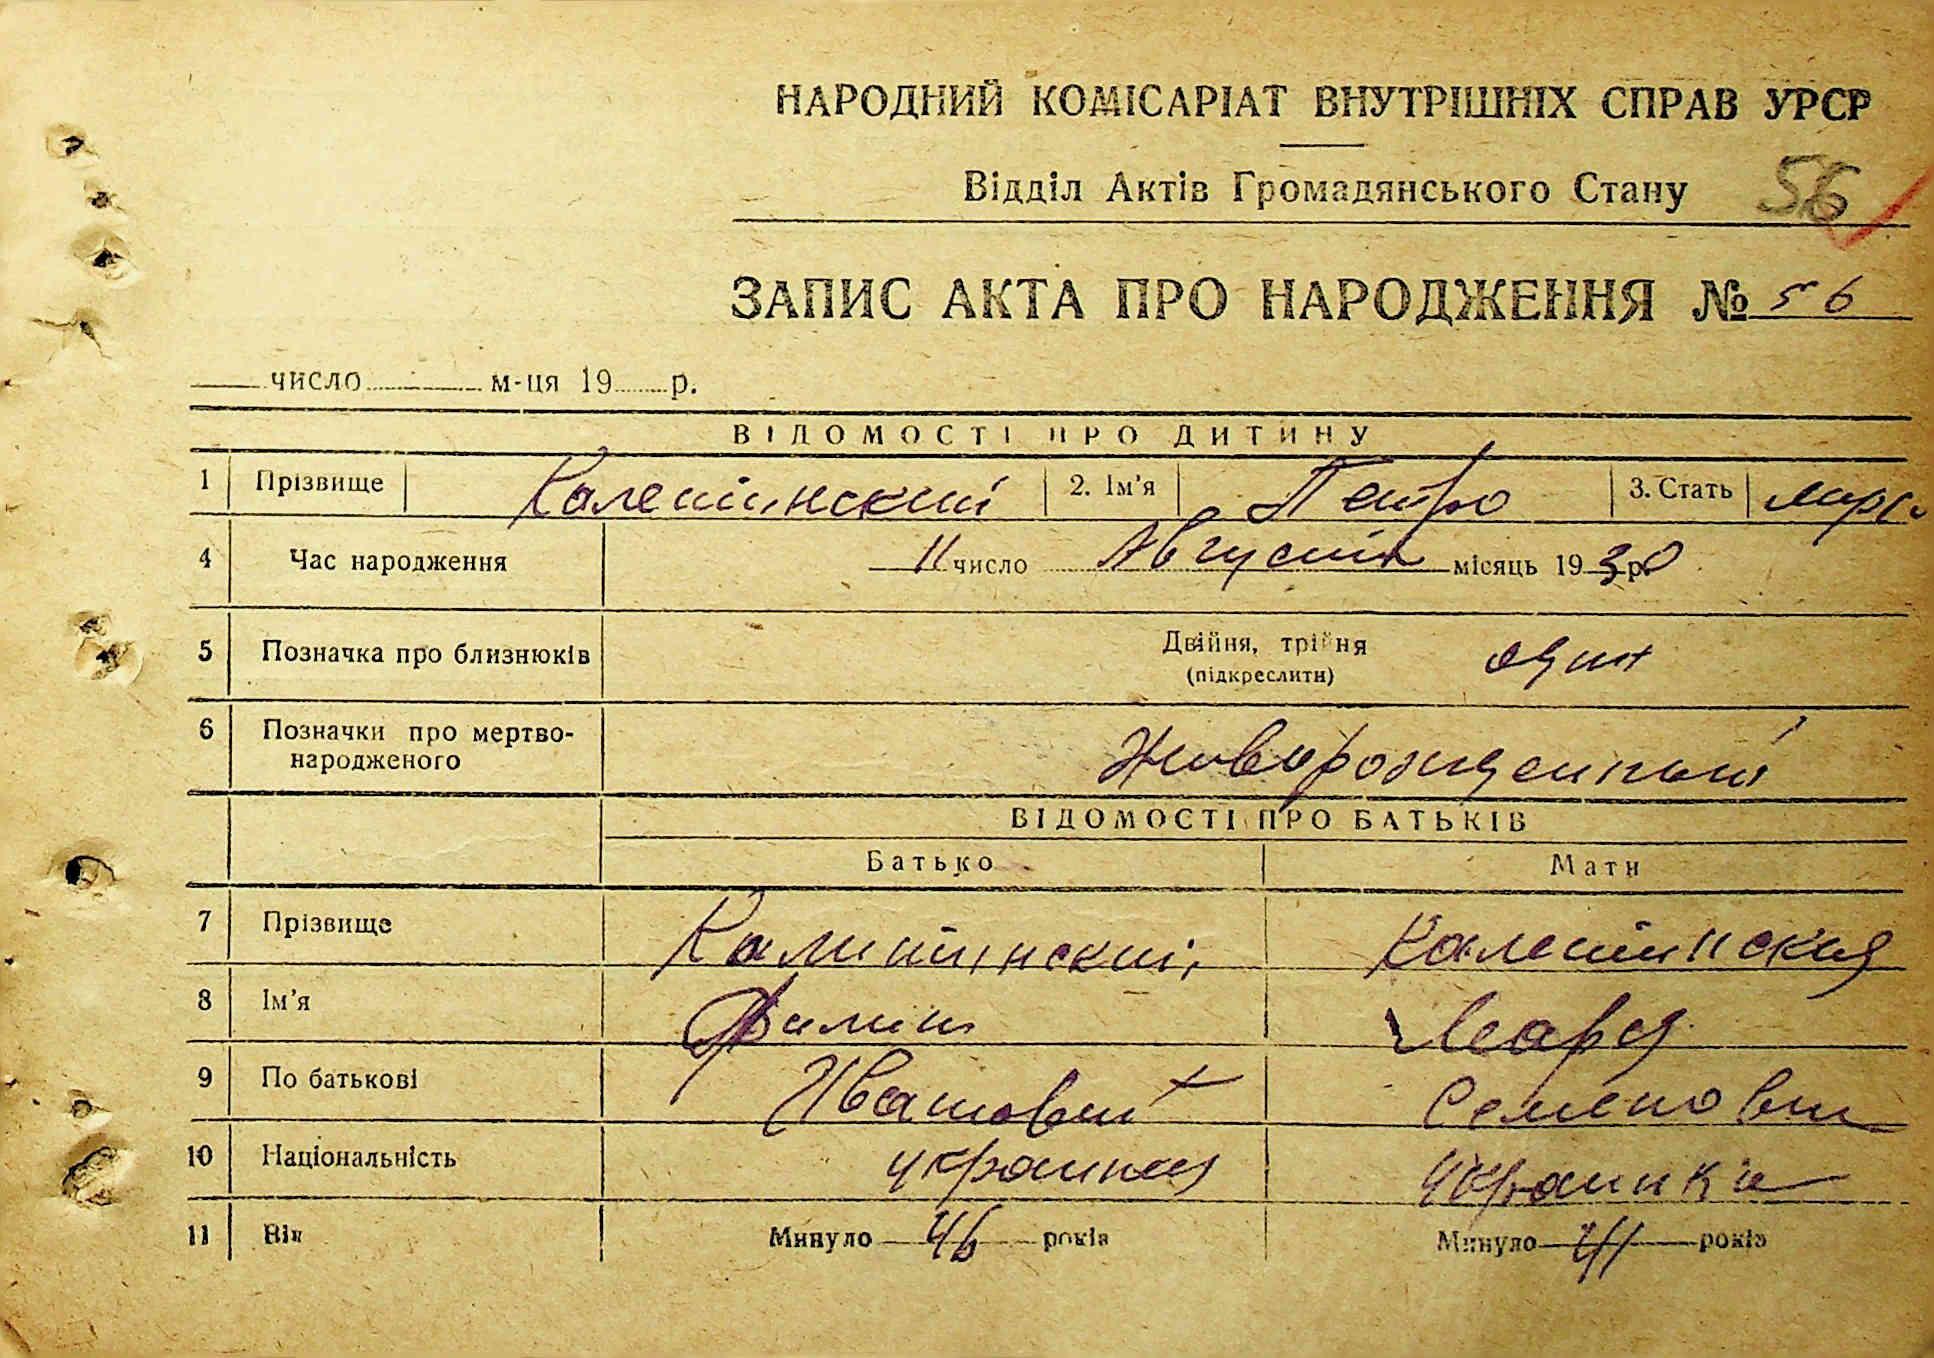 НАРОДНИЙ КОМІСАРІАТ ВНУТРІШНІХ СПРАВ УРСР
Відділ Актів Громадянського Стану 56
ЗАПИС АКТА ПРО НАРОДЖЕННЯ № 56
число м-ця 19 р.
ВІДОМОСТІ ПРО ДИТИНУ
1 Прізвище Калетинский 2. Ім'я Петро 3. Стать
4 Час народження 11 число Август місяць 1930 р.
5 Позначка про близнюків Двійня, трійня один
(підкреслити)
6 Позначки про мертво- Живорожденный
народженого
ВІДОМОСТІ ПРО БАТЬКІВ
Батько Мати
7 Прізвище Калитинский Калетинская
8 Ім'я Филип
9 По батькові Иванович Семеновна
10 Національність украинец Украинка
11 Вік Минуло 46 років Минуло 41 років